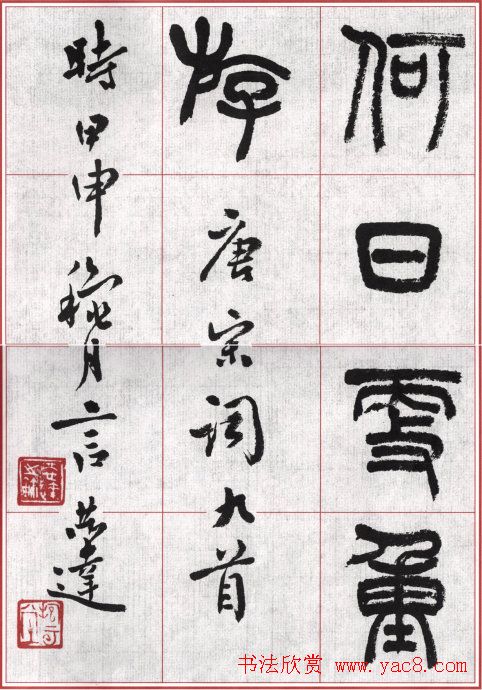 何日更重
斿唐宋词九首
時甲申秋月言恭達
书法欣赏 www.yac8.com